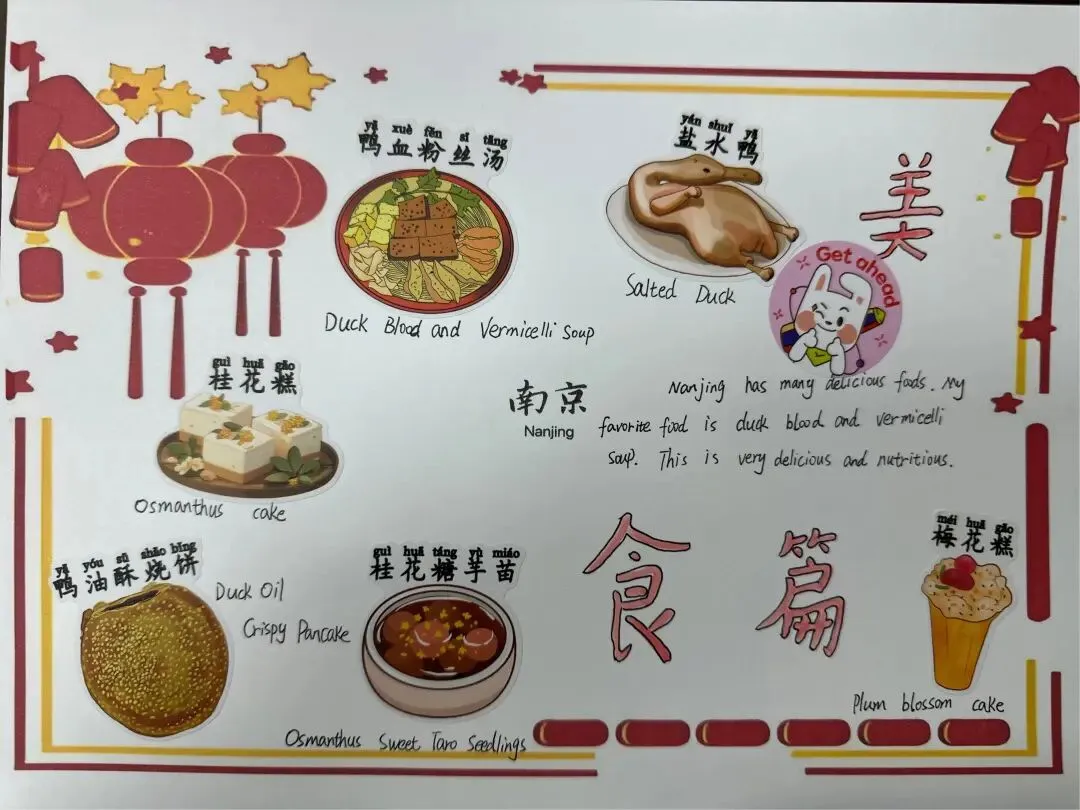 yā xuè fěn sī tāng
鸭血粉丝汤
Duck Blood and Vermicelli Soup
yán shuǐ yā
盐水鸭
Salted Duck
美
Get ahead
guì huā gāo
桂花糕
Osmanthus cake
南京
Nanjing
Nanjing has many delicious foods. My
favorite food is duck blood and vermicelli
soup. This is very delicious and nutritious.
yā yóu sū shāo bǐng
鸭油酥烧饼
Duck Oil
Crispy Pancake
guì huā táng yù miáo
桂花糖芋苗
Osmanthus Sweet Taro Seedlings
食篇
méi huā gāo
梅花糕
Plum blossom cake